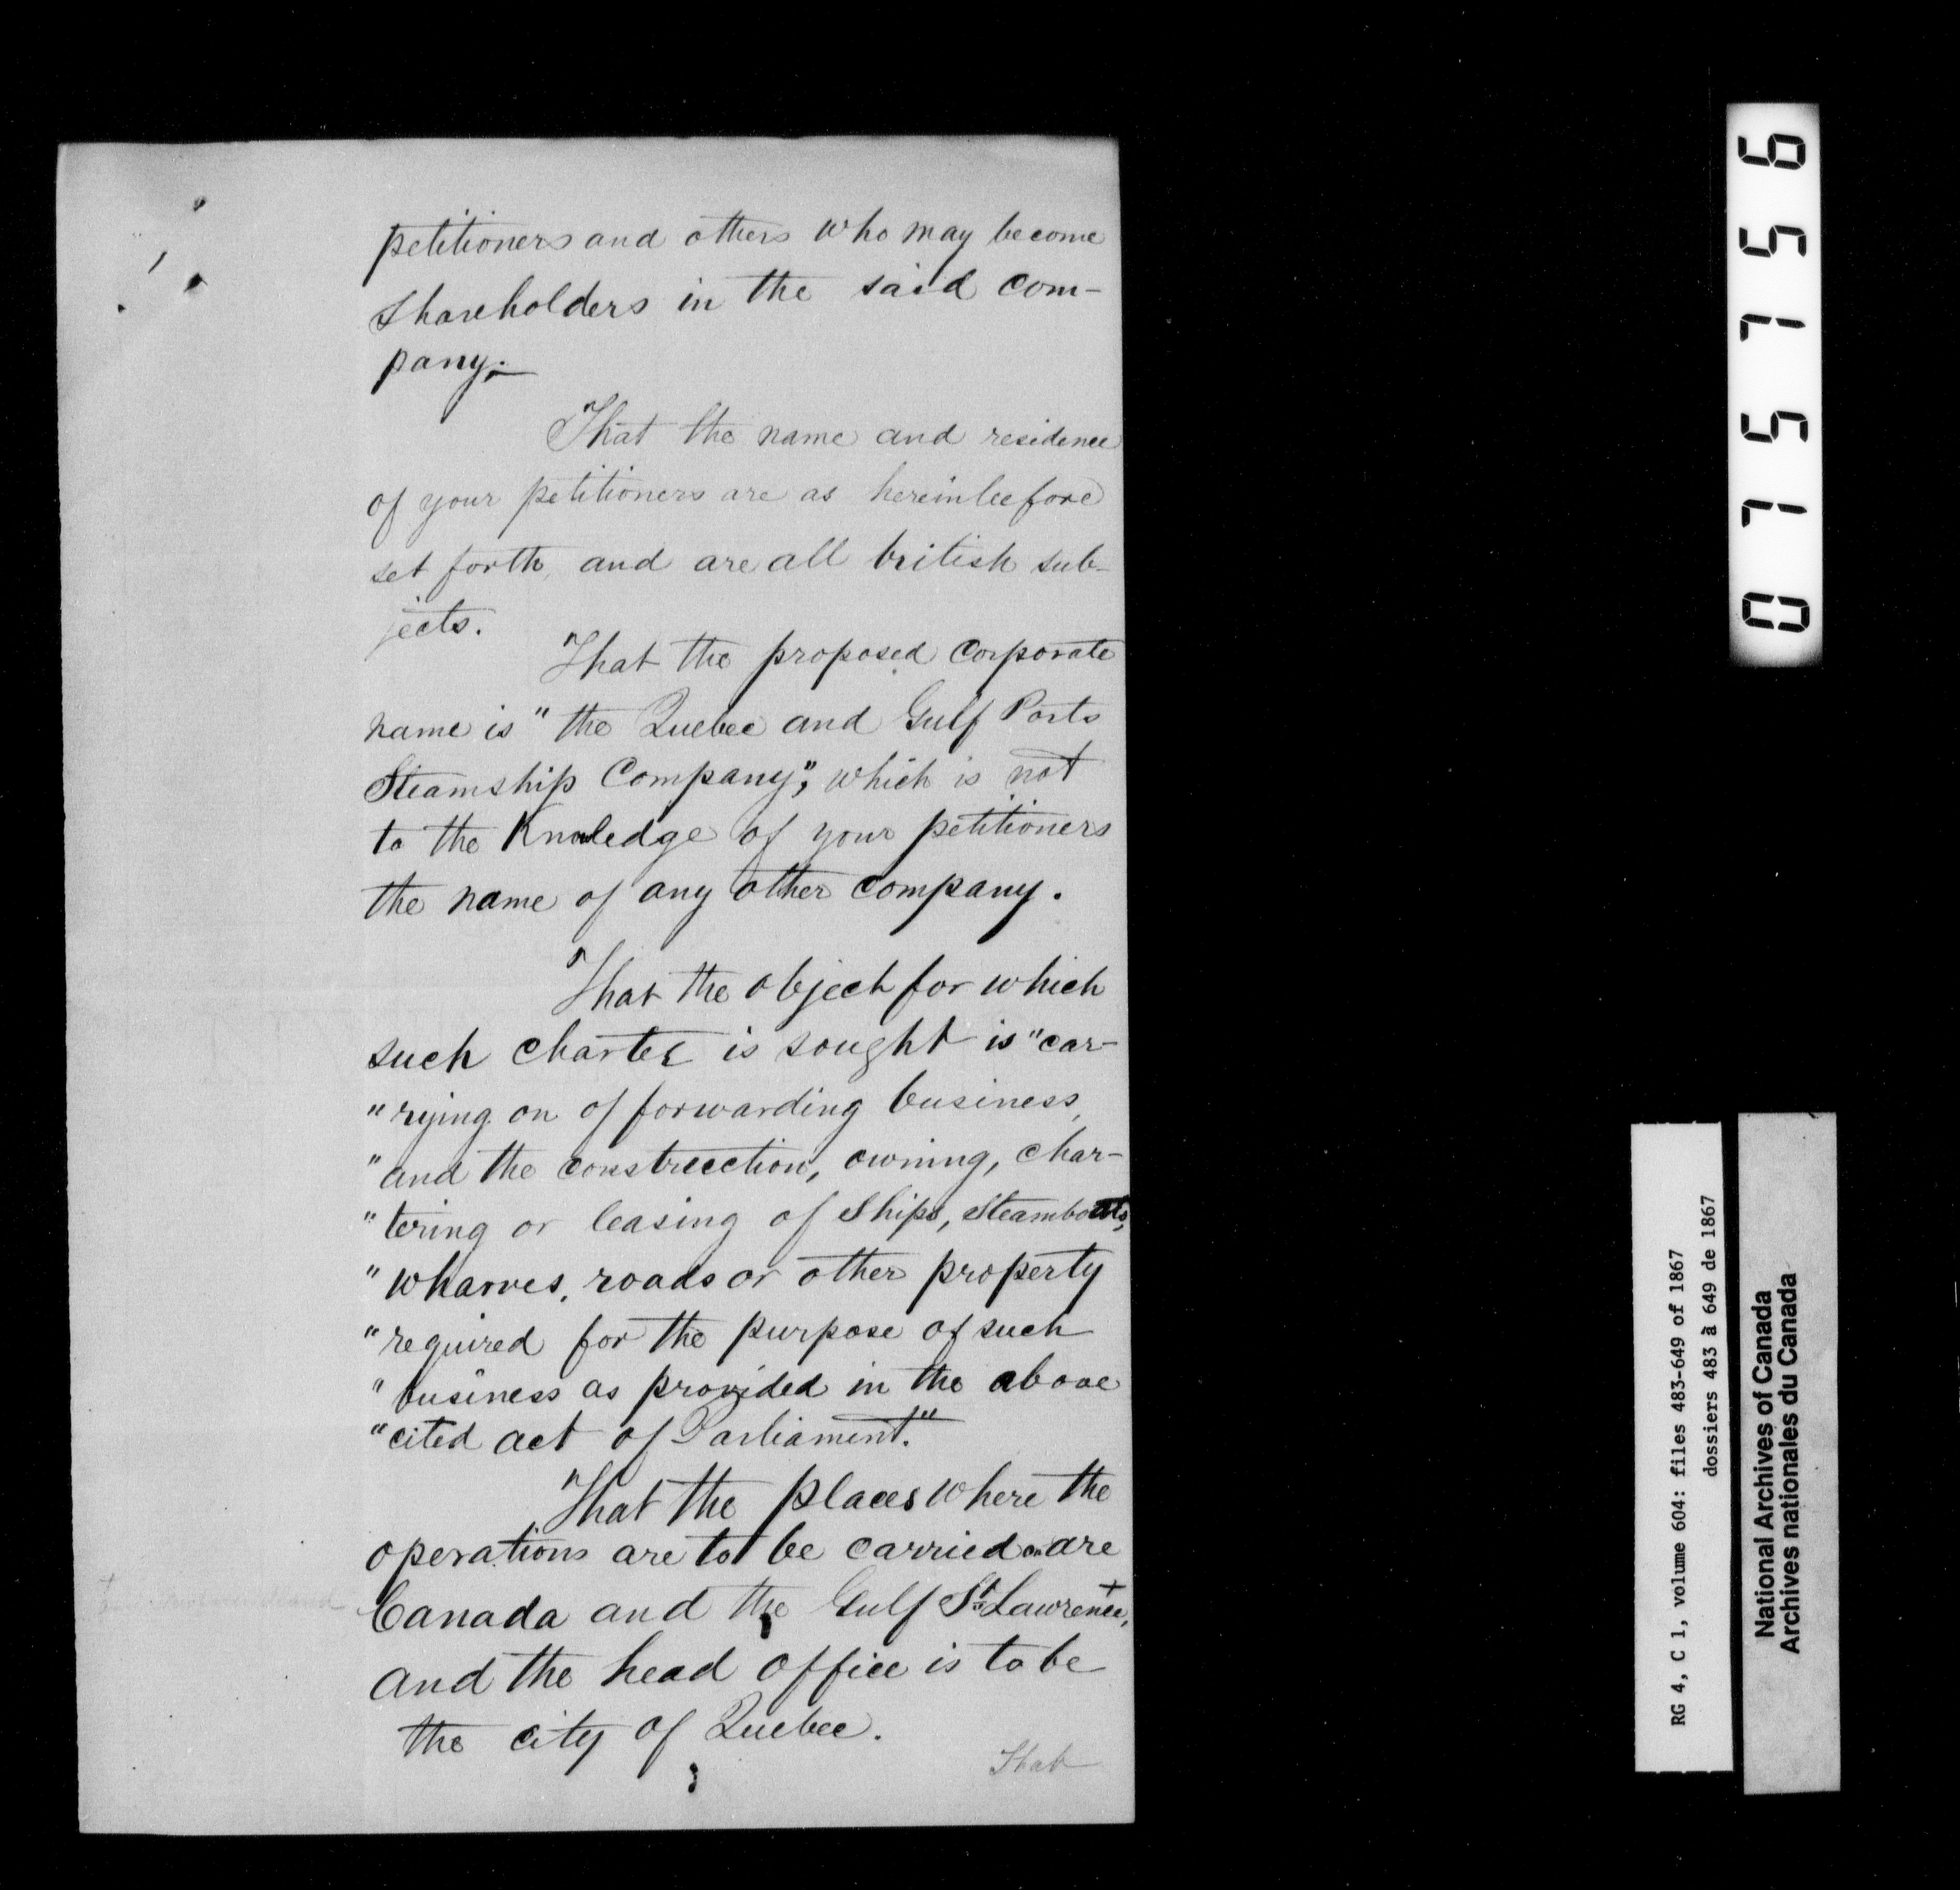 petitioners and others who may become
shareholders in the said com-
pany;—
That the name and residence
of your petitioners are as hereinbefore
set forth, and are all british sub-
jects.
That the proposed Corporate
name is "the Quebec and Gulf Ports
Steamship Company", which is not
to the Knowledge of your petitioners
the name of any other company.
That the object for which
such charter is sought is "car-
"rying on of forwarding business,
"and the construction, owning, char-
"tering or leasing of Ships, Steamboats,
"wharves, roads or other property
"required for the purpose of such
"business as provided in the above
"cited act of Parliament."
That the places where the
operations are to be carried on are
Canada and the Gulf St. Lawrence, +
and the head office is to be
the city of Quebec.
That
075756
RG 4, C 1, volume 604: files 483-649 of 1867
dossiers 483 à 649 de 1867
National Archives of Canada
Archives nationales du Canada